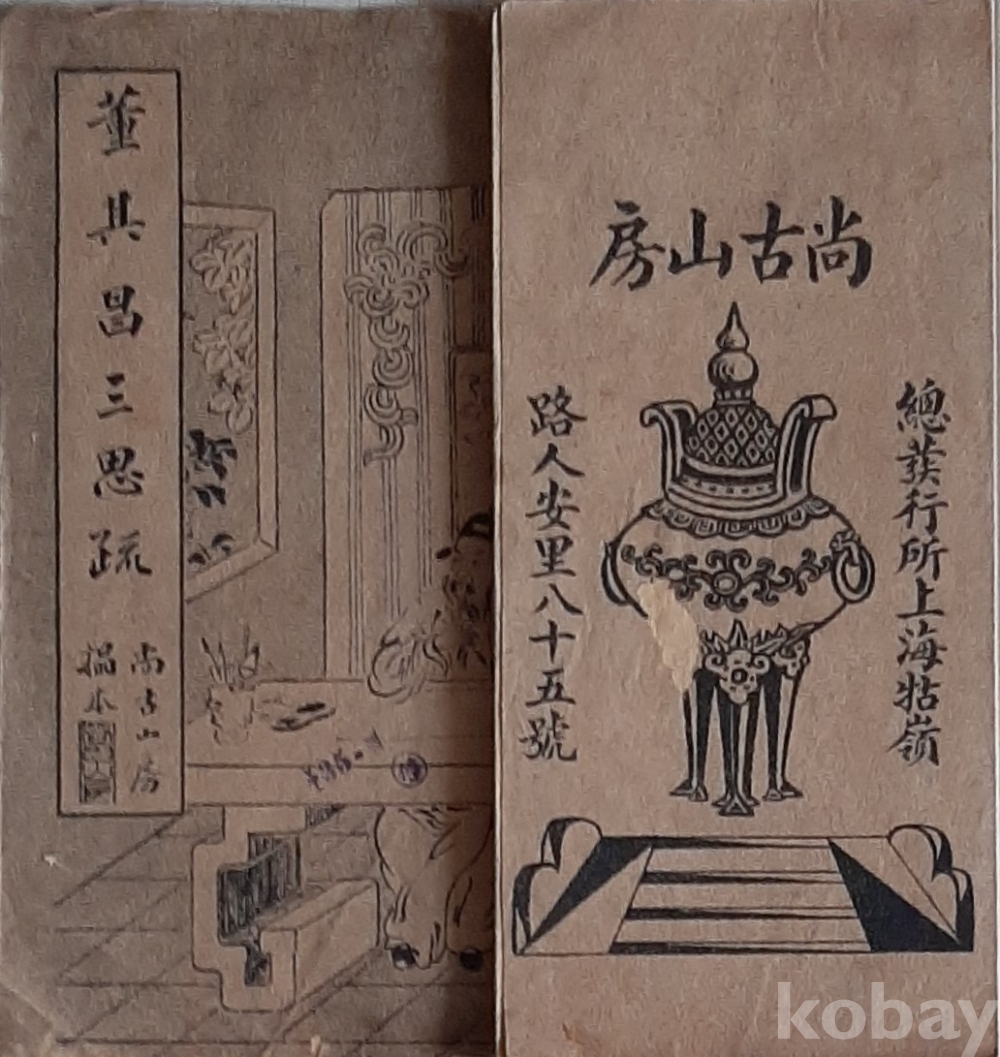 董其昌三思疏
尚古山房
搨本
尚古山房
總發行所上海牯嶺
路人安里八十五號
kobay